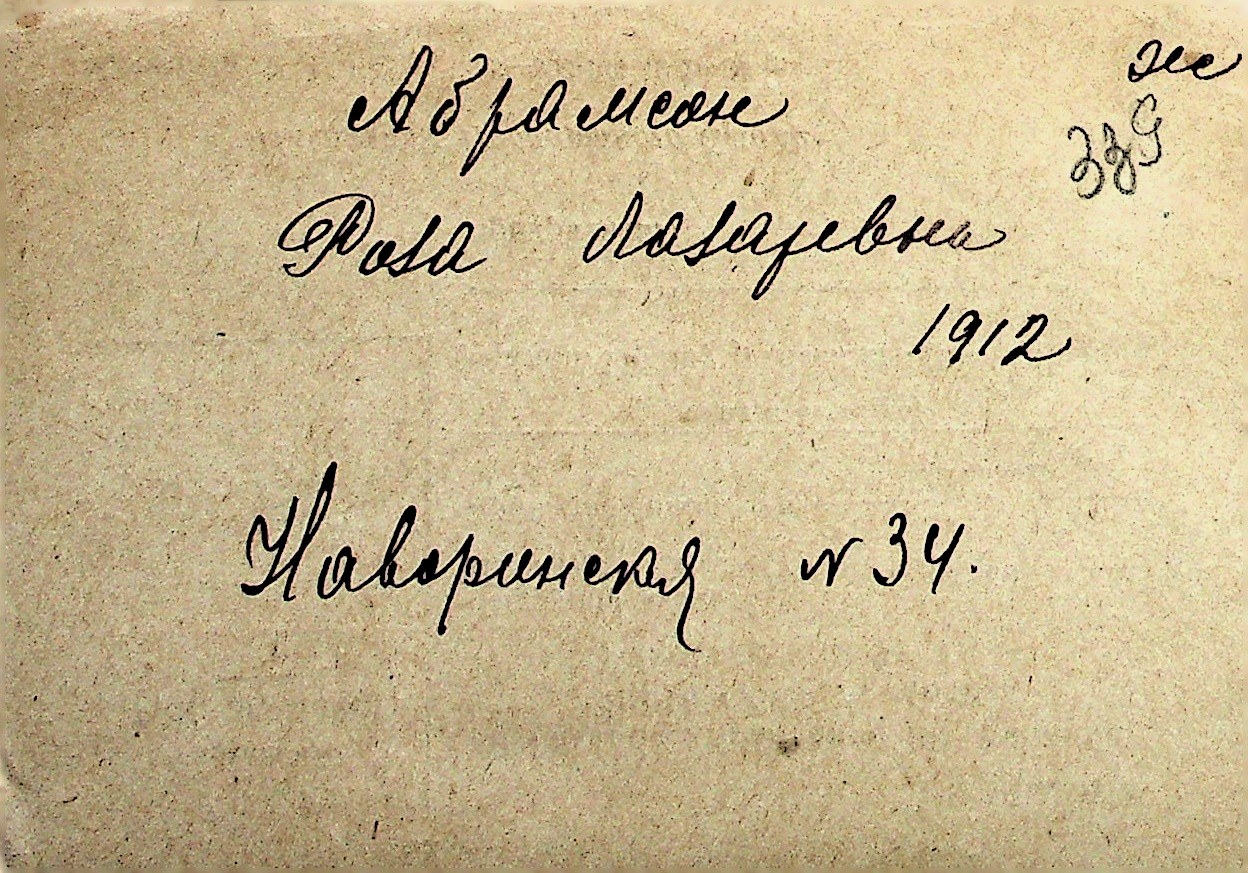 Абрамсон
же
339
Роза Лазаревна
1912
Наваринская № 34.